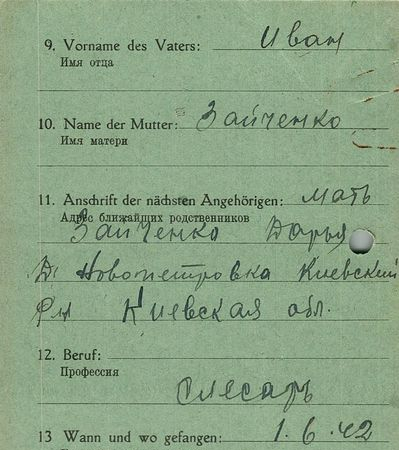 9. Vorname des Vaters: Иван
Имя отца
10. Name der Mutter: Зайченко
Имя матери
11. Anschrift der nächsten Angehörigen: мать
Адрес ближайших родственников
Зайченко Дарья
Д. Новопетровка Киевский
Киевская обл.
12. Beruf:
Профессия
Слесарь
13 Wann und wo gefangen: 1.6.42